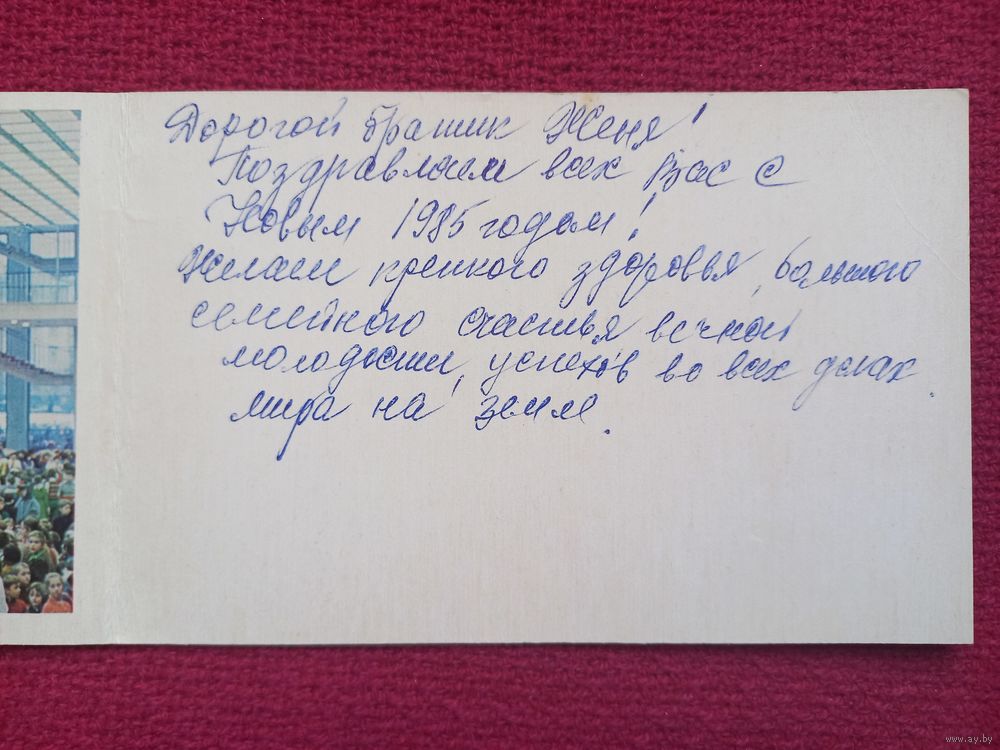 Дорогой братик Женя!
Поздравляем всех Вас с
Новым 1985 годом!
Желаем крепкого здоровья, большого
семейного счастья вечной
молодости, успехов во всех делах.
мира на земле.
www.ay.by